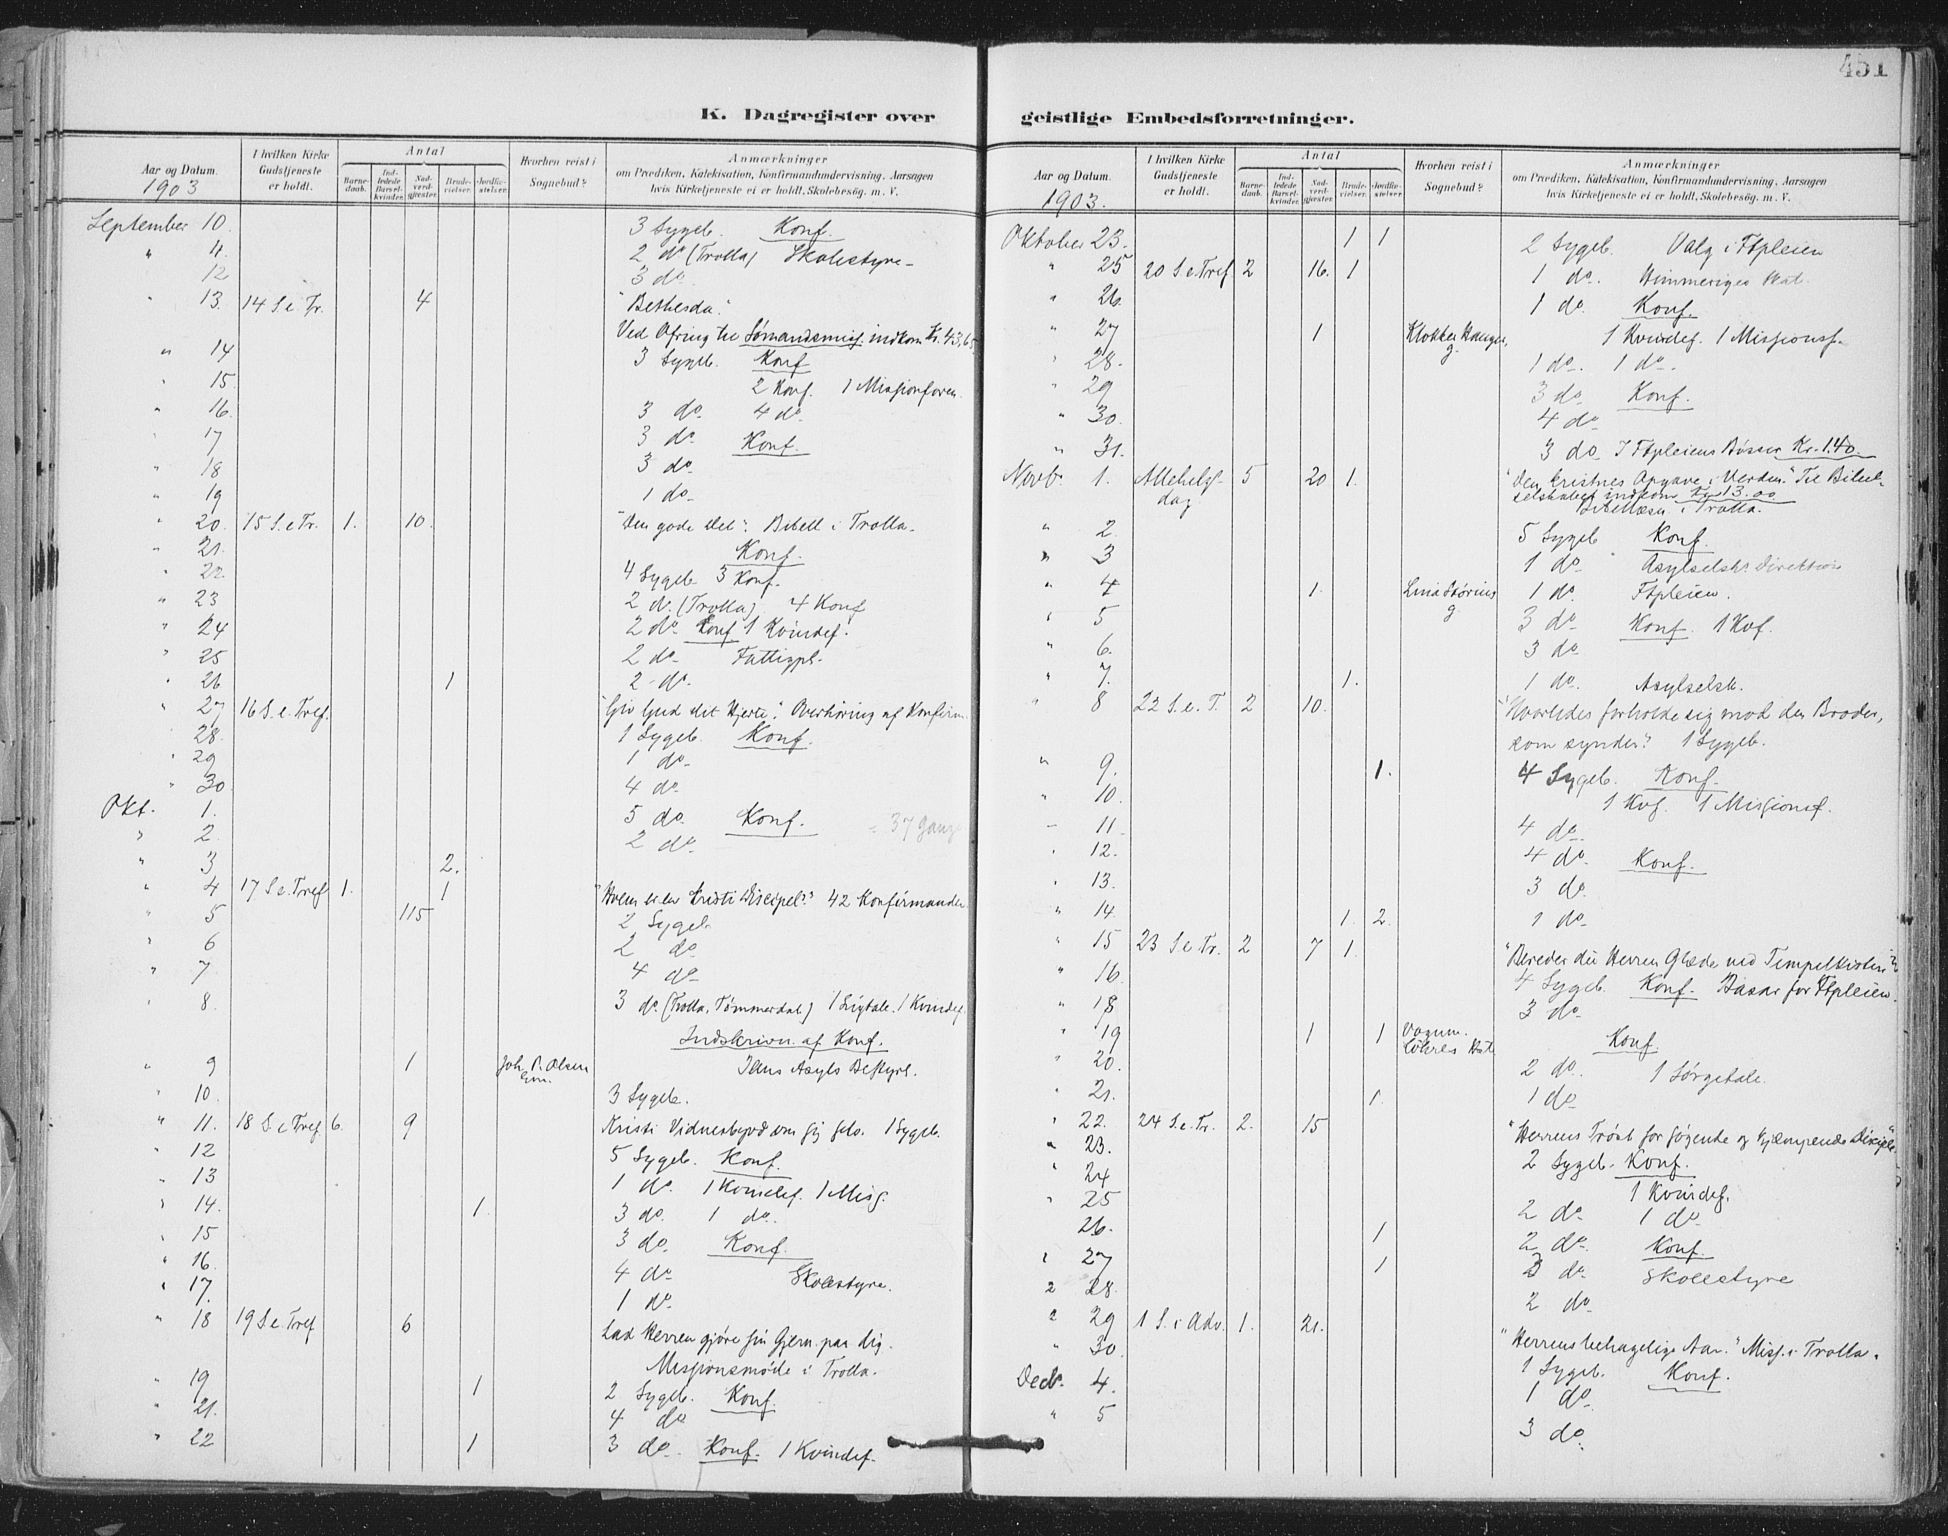 451
K. Dagregister over
Aar og Datum.
I hvilken Kirke Gudstjeneste er holdt.
Antal
Barnedaab.
Indledede Barselkvinder.
Nadverdgjester.
Brudevielser.
Jordfæstelser.
Hvorhen reist i Sognebud?
Anmærkninger
om Prædiken, Katekisation, Konfirmandundervisning, Aarsagen
hvis Kirketjeneste ei er holdt, Skolebesøg. m. V.
1903
September 10. 3 Sygeb. Konf.
" 11. 2 do (Trolla) Skolestyre
12 3 do
" 13. 14 S. e. Tr. 4 "Bethesda".
Ved Ofring til Sømandsmis. indkom Kr. 43,65
" 14 3 Sygeb. Konf
" 15. 2 Konf. 1 Missionsforen.
" 16. 3 do 4 do
" 17 3 do Konf.
" 18 3 do
" 19 1 do
" 20. 15 S. e. Tr. 1. 10. "Den gode Del". Bibell i Trolla.
" 21. Konf.
" 22. 4 Sygeb 3 Konf.
" 23 2 do (Trolla) 4 Konf
" 24 2 do Konf 1 Kvindef.
" 25 2 do Fattigpl.
" 26 1 2 do
" 27 16 S. e. Tref. "Giv Gud dit Hjerte". Overhøring af Konfirm.
28. 1 Sygeb. Konf.
" 29 1 do
" 30. 4 do
Okt. 1. 5 do Konf. = 37 Gange
" 2. 2 do
" 3 2.
" 4 17 S. e. Tref 1. 1 "Hvem er en Kristi Discipel?" 42 Konfirmander
" 5 115 2 Sygeb.
" 6 2 do
" 7 4 do
" 8. 3 do (Trolla, Tømmerdal) 1 Ligtale. 1 Kvindef.
Indskrivn. af Konf.
" 9 1 Joh. P. Olsen Asyls Bestyre.
" 10. 3 Sygeb.
" 11. 18 S. e. Tref 6. 9 Kristi Vidnesbyrd om sig selv. 1 Sygeb.
" 12 5 Sygeb. Konf.
" 13 1 do. 1 Kvindef. 1 Mis.
" 14. 1 3 do. 1 do.
" 15 3 do. Konf.
" 16. 4 do Skolestyre.
" 17. 1 do.
" 18 19 S e Tref 6 Lad Herren gjøre sin Gjern. paa dig.
Missionsmøde i Trolla.
" 19 1 2 Sygeb. Konf.
" 21. 4 do
" 22 1 3 do. Konf. 1 Kvindef.
geistlige Embedsforretninger.
Aar og Datum.
I hvilken Kirke Gudstjeneste er holdt.
Antal
Barnedaab.
Indledede Barselkvinder.
Nadverdgjester.
Brudevielser.
Jordfæstelser.
Hvorhen reist i Sognebud?
Anmærkninger
om Prædiken, Katekisation, Konfirmandundervisning, Aarsagen
hvis Kirketjeneste ei er holdt, Skolebesøg. m. V.
1903.
Oktober 23. 1 1 2 Sygeb. Valg i Ftpleien
" 25 20 S. e. Tref 2 16. 1 1 do. Himmeriges Skat.
" 26. 1 do. Konf.
" 27 1 Klokker 1 Kvindef. 1 Missionsf.
" 28. 1 do. 1 do.
" 29 3 do Konf.
" 30. 4 do
" 31. 3 do I Ftpleiens Bøsser Kr. 1.40.
Novb. 1. Allehelgsdag 5 20 1. "Den kristnes Opgave i Verden." Til Bibelselskabet indkom Kr. 13.00
Bibellæsn. i Trolla.
" 2. 5 Sygeb Konf.
" 3 1 do Asylselsk. Direktion
" 4 1. 1 do. Ftpleien.
" 5 3 do Konf. 1 Kvf.
" 6. 3 do
" 7. 1. 1 do. Asylselsk.
" 8 22 S. e. T. 2 10. "Hvorledes forholde sig mod den Broder,
som synder?" 1 Sygeb.
" 9. 1. 4 Sygeb. Konf.
" 10. 1 Kvf. 1 Missionsf.
11. 4 do
12. 4 do. Konf.
13. 3 do.
" 14. 1. 2. 1 do
" 15 23 S e Tr. 2 7 1. "Bereder du Herren Glæde ved Tempelkisten?"
" 16. 4 Sygeb. Konf. Basar for Ftpleien.
" 18 3 do
" 19 1 1 Konf.
" 20. 2 do. 1 Sørgetale.
" 21. 1. 1 do
" 22. 24 S. e. Tr. 2. 15 "Herrens Trøst for søgende og kjæmpende Disciple"
" 23. 2 Sygeb. Konf.
" 24 1 Kvindef.
" 25 2 do 1 do
26. 1 2 do. Konf.
27 1 3 do Skolestyre
28. 2 do.
29 1 S. i Adv. 1. 21. "Herrens behagelige Aar." Miss. i Trolla.
" 30. 1 Sygeb. Konf.
Decb. 4. 1 do
" 5 3 do.